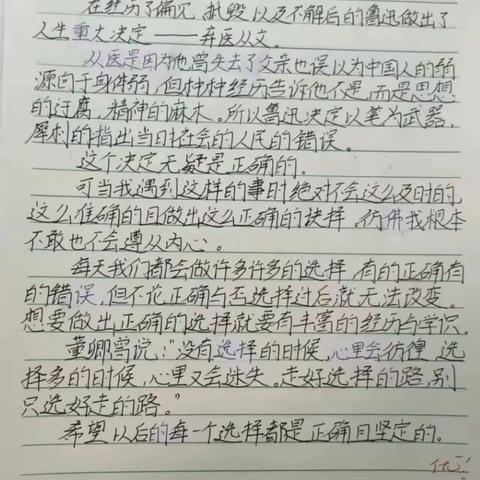 在经历了偏见、批毁以及不解后的鲁迅做出了
人生重大决定——弃医从文。
从医是因为他曾失去了父亲也误以为中国人的弱
源自于身体弱，但种种经历告诉他不是，而是思想
的迂腐，精神的麻木。所以鲁迅决定以笔为武器，
犀利的指出当日社会的人民的错误。
这个决定无疑是正确的。
可当我遇到这样的事时绝对不会这么及时的，
这么准确的且做出这么正确的抉择，仿佛我根本
不敢也不会遵从内心。
每天我们都会做许多许多的选择，有的正确有
的错误，但不论正确与否选择过后就无法改变。
想要做出正确的选择就要有丰富的经历与学识，
董卿曾说：“没有选择的时候，心里会彷徨，选
择多的时候，心里又会迷失。走好选择的路，别
只选好走的路。”
希望以后的每一个选择都是正确且坚定的。
优！